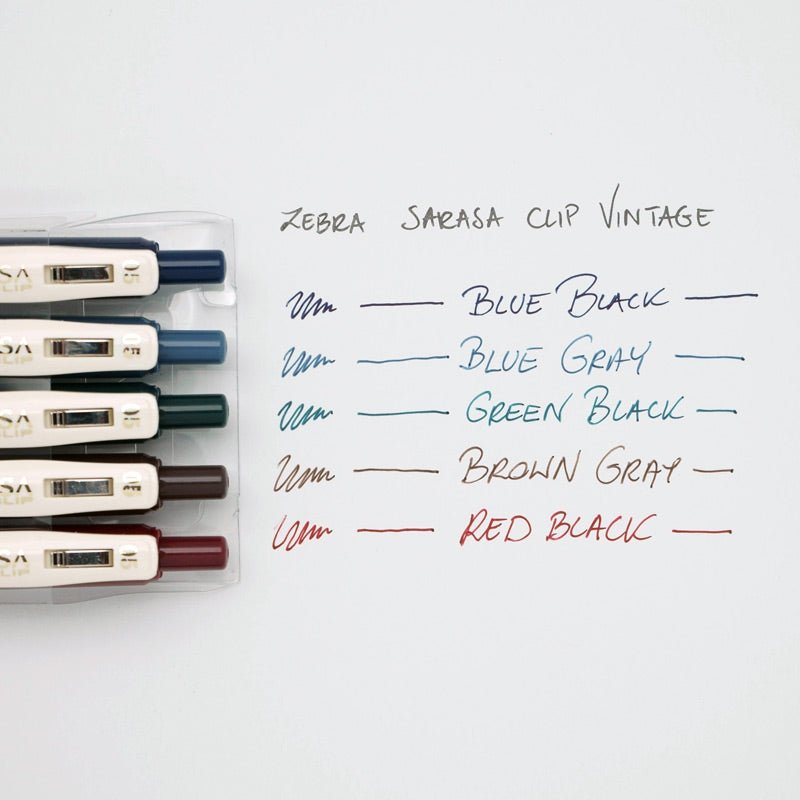 ZEBRA SARASA CLIP VINTAGE
BLUE BLACK
BLUE GRAY
GREEN BLACK
BROWN GRAY
RED BLACK
SA
CLIP
05
SA
05
SA
CLIP
05
SA
CLIP
05
SA
CLIP
05